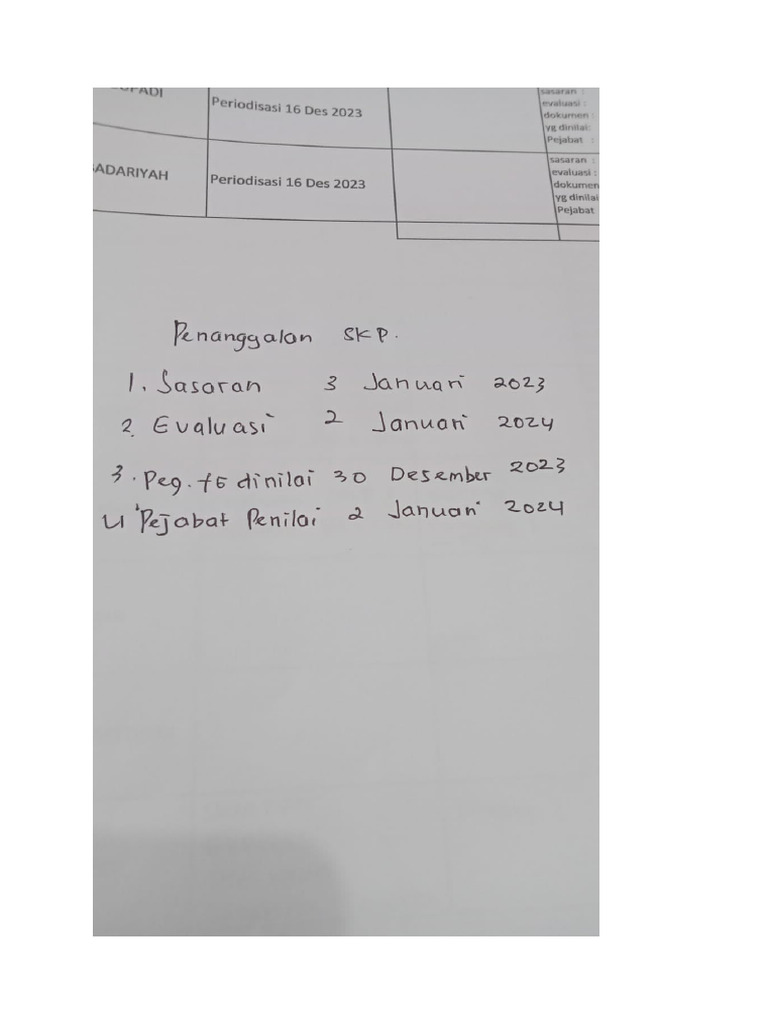 Periodisasi 16 Des 2023
sasaran :
evaluasi :
dokumen :
yg dinilai:
Pejabat :
ADARIYAH
Periodisasi 16 Des 2023
sasaran :
evaluasi :
dokumen
yg dinilai
Pejabat
Penanggalan SKP.
1. Sasaran 3 Januari 2023
2. Evaluasi 2 Januari 2024
3. Peg. yg dinilai 30 Desember 2023
4 Pejabat Penilai 2 Januari 2024